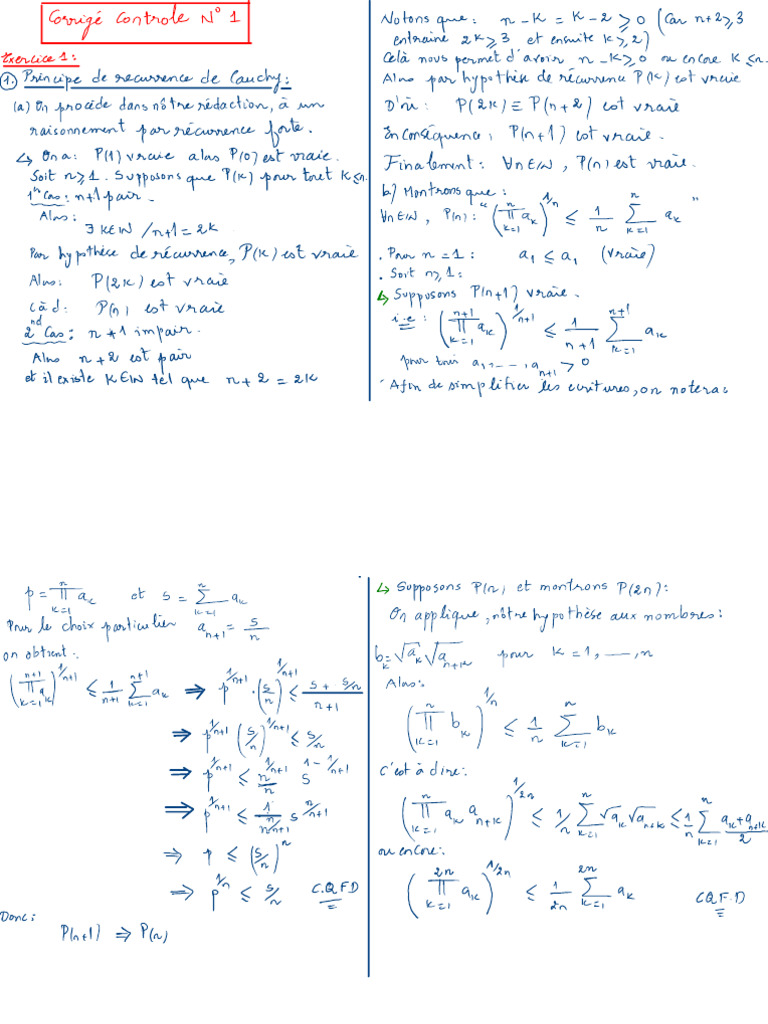 Corrigé Controle N° 1
Exercice 1:
1. Principe de recurrence de Cauchy:
(a) On procède dans nôtre rédaction, à un
raisonnement par récurrence forte.
↳ On a: P(1) vraie alos P(0) est vraie.
Soit n ≥ 1. Supposons que P(k) pour tout k ≤ n.
1er Cas: n+1 pair.
Alos:
∃ k∈ℕ / n+1 = 2k
Par hypothèse de récurrence, P(k) est vraie
Alos: P(2k) est vraie
Càd: P(n) est vraie
2nd Cas: n+1 impair.
Alos n+2 est pair
et il existe k∈ℕ tel que n+2 = 2k
Notons que: n-k = k-2 ≥ 0 (Car n+2 ≥ 3
entraine 2k ≥ 3 et ensuite k ≥ 2)
Celà nous permet d'avoir n-k ≥ 0 ou encore k ≤ n.
Alos par hypothèse de récurrence P(k) est vraie
D'où: P(2k) ≡ P(n+2) est vraie
En conséquence, P(n+1) est vraie.
Finalement: ∀n∈ℕ, P(n) est vraie.
b) Montrons que:
∀n∈ℕ, P(n): "(∏_{k=1}^{n} a_k)^{1/n} ≤ 1/n ∑_{k=1}^{n} a_k"
. Pour n = 1: a_1 ≤ a_1 (vraie)
. Soit n ≥ 1:
↳ Supposons P(n+1) vraie.
i.e: (∏_{k=1}^{n+1} a_k)^{1/n+1} ≤ 1/(n+1) ∑_{k=1}^{n+1} a_k
pour tous a_1, ---, a_{n+1} > 0
Afin de simplifier les ecritures, on notera:
p = ∏_{k=1}^{n} a_k et s = ∑_{k=1}^{n} a_k
Pour le choix particulier a_{n+1} = s/n
on obtient:
(∏_{k=1}^{n+1} a_k)^{1/n+1} ≤ 1/(n+1) ∑_{k=1}^{n+1} a_k ⇒ p^{1/n+1} . (s/n)^{1/n+1} ≤ (s + s/n)/(n+1)
⇒ p^{1/n+1} (s/n)^{1/n+1} ≤ s/n
⇒ p^{1/n+1} ≤ n^{1/n+1}/n s^{1-1/n+1}
⇒ p^{1/n+1} ≤ 1/n^{n/n+1} s^{n/n+1}
⇒ p ≤ (s/n)^n
⇒ p^{1/n} ≤ s/n C.Q.F.D
Donc:
P(n+1) ⇒ P(n)
↳ Supposons P(n) et montrons P(2n):
On applique, nôtre hypothèse aux nombres:
b_k = √a_k √a_{n+k} pour k = 1, ---, n
Alos:
(∏_{k=1}^{n} b_k)^{1/n} ≤ 1/n ∑_{k=1}^{n} b_k
C'est à dire:
(∏_{k=1}^{n} a_k a_{n+k})^{1/2n} ≤ 1/n ∑_{k=1}^{n} √a_k √a_{n+k} ≤ 1/n ∑_{k=1}^{n} (a_k + a_{n+k})/2
ou encore:
(∏_{k=1}^{2n} a_k)^{1/2n} ≤ 1/2n ∑_{k=1}^{2n} a_k CQF.D